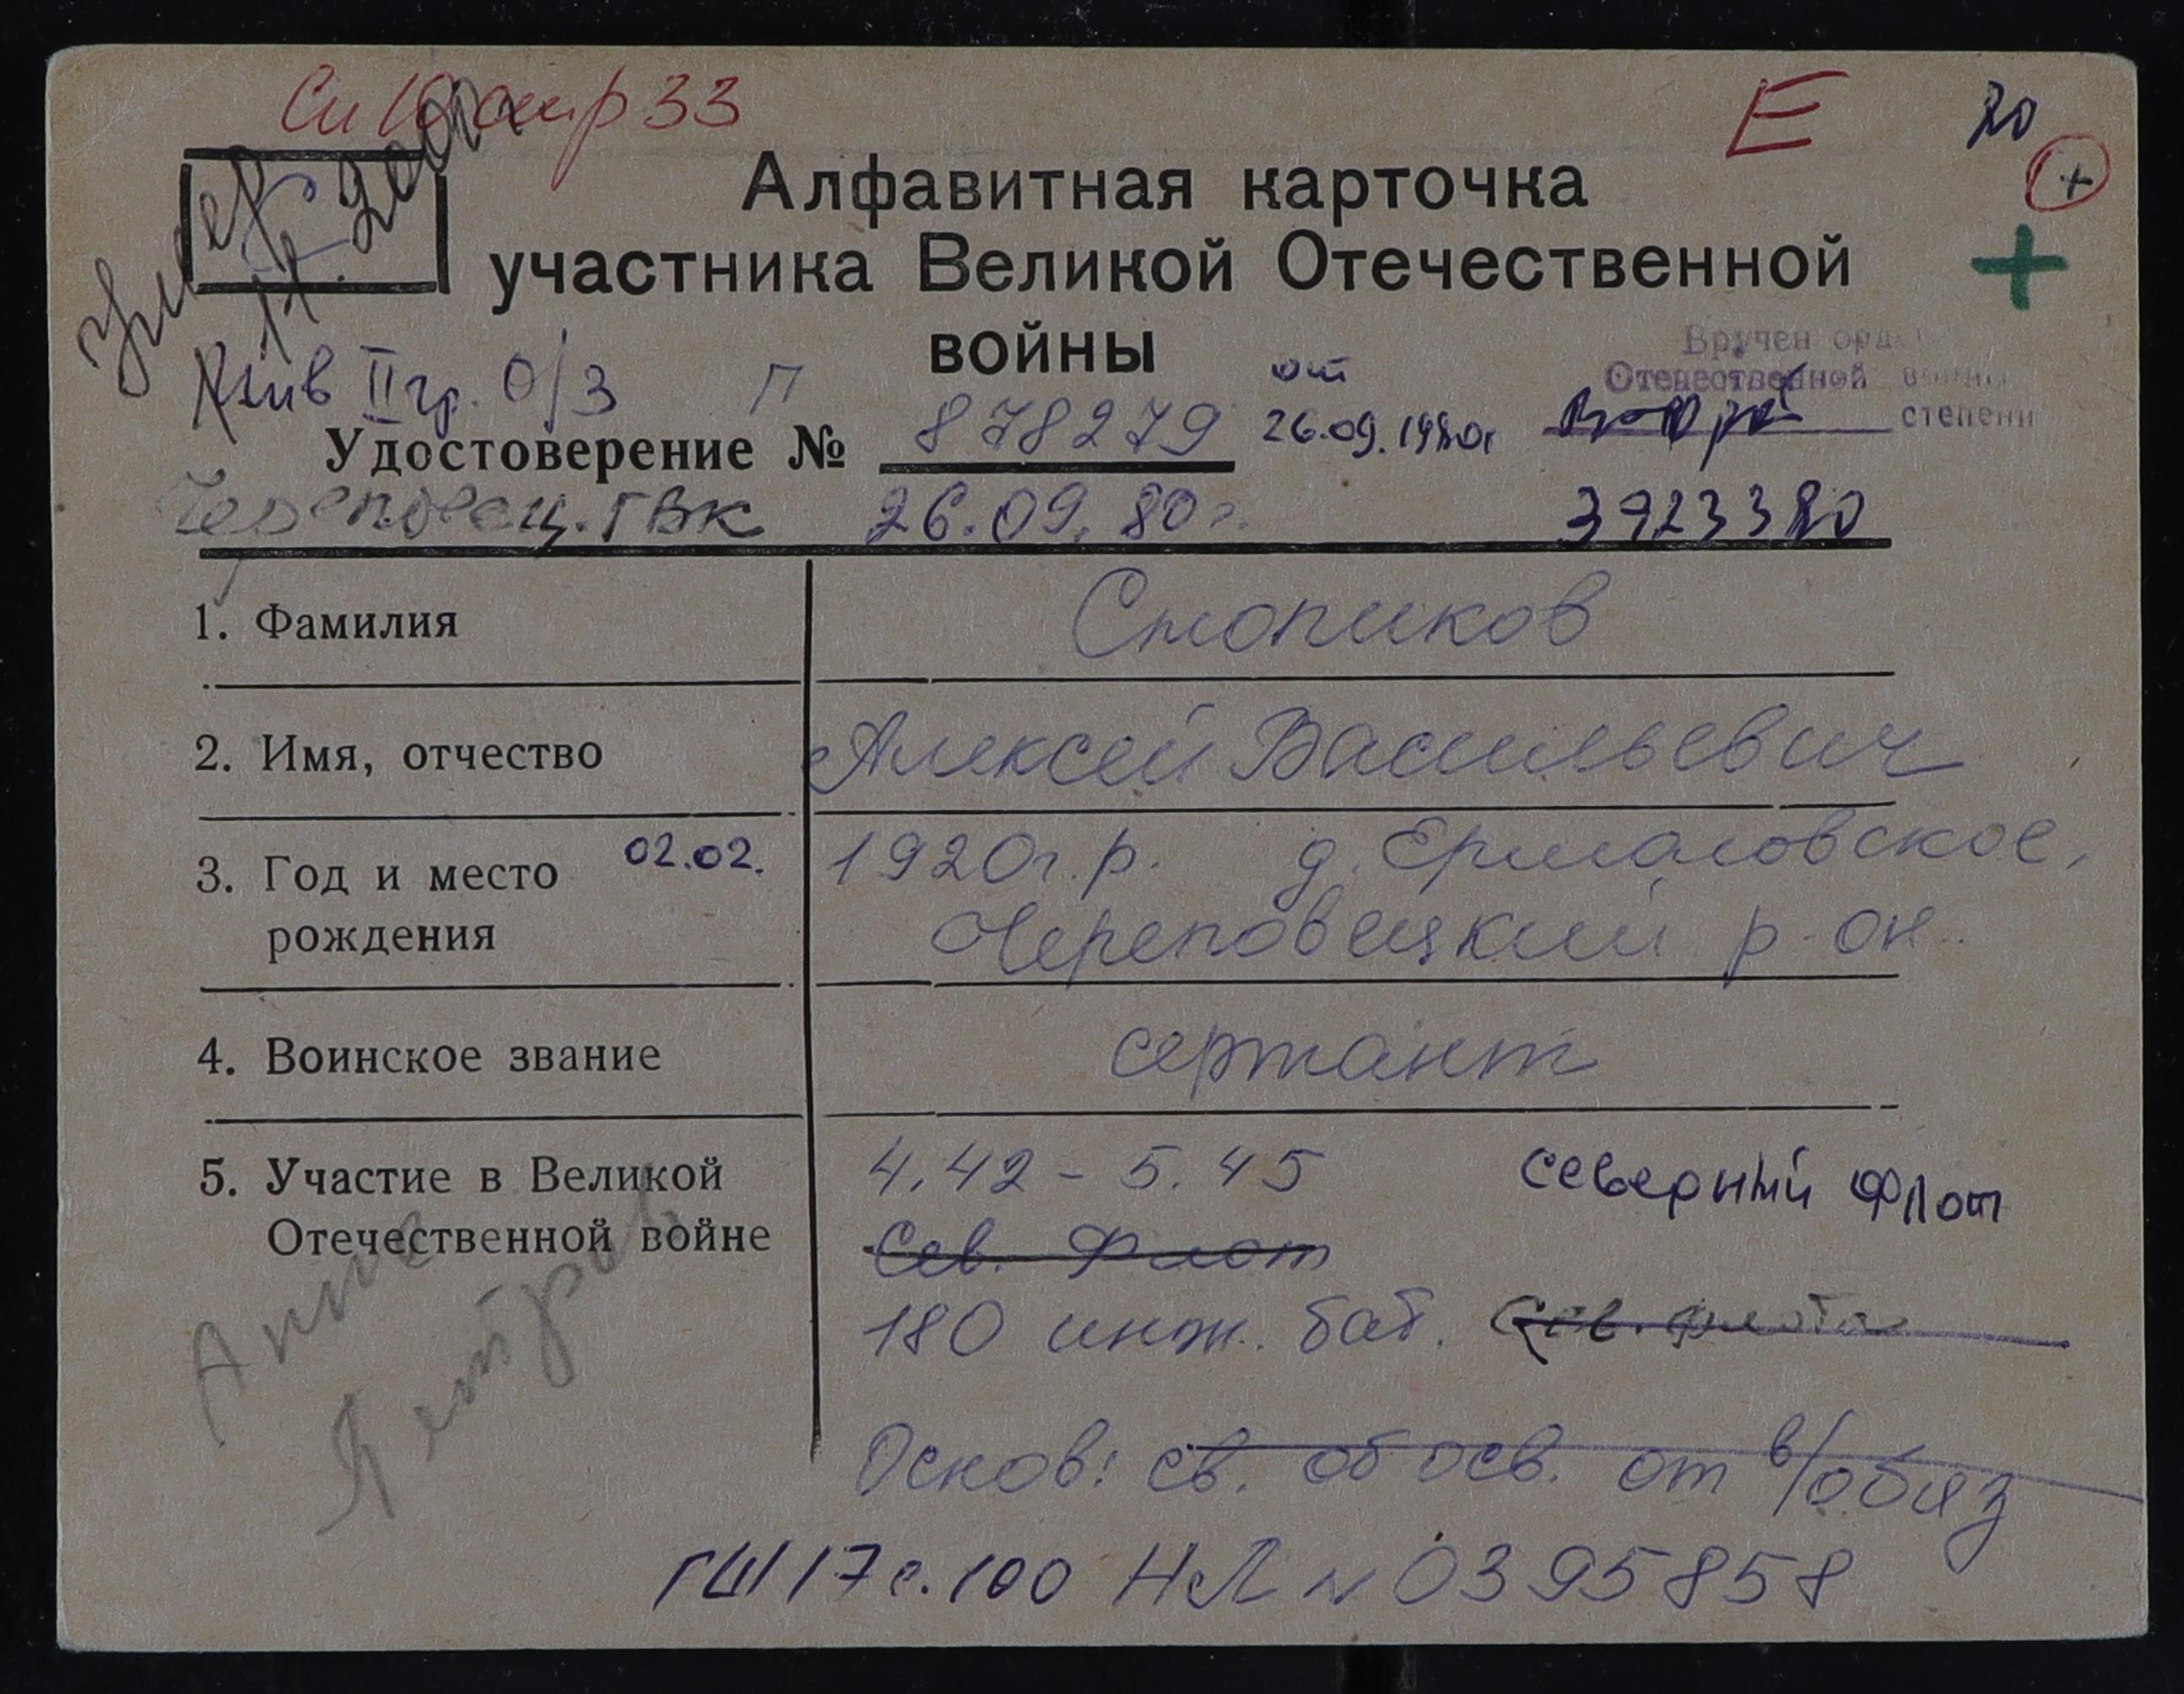 Сп 10 стр 33
Е
20
+
+
умер
17. 2001г
Алфавитная карточка
участника Великой Отечественной
войны
Вручен орд
Отечественной войны
второй степени
3923380
Инв II гр. О/З П
Удостоверение № 878279 от 26.09.1980г
Череповец. ГВК 26.09.80г.
1. Фамилия Стопиков
2. Имя, отчество Алексей Васильевич
3. Год и место 02.02. 1920г.р. д. Ермаловское,
рождения Череповецкий р-он.
4. Воинское звание сержант
5. Участие в Великой 4.42 - 5.45 Северный Флот
Отечественной войне Сев. Флот
180 инж. бат. Сев. флота
Анна
Петров
Основ: св. об осв. от в/обяз
ГШ 17 с. 100 НЛ № 0395858